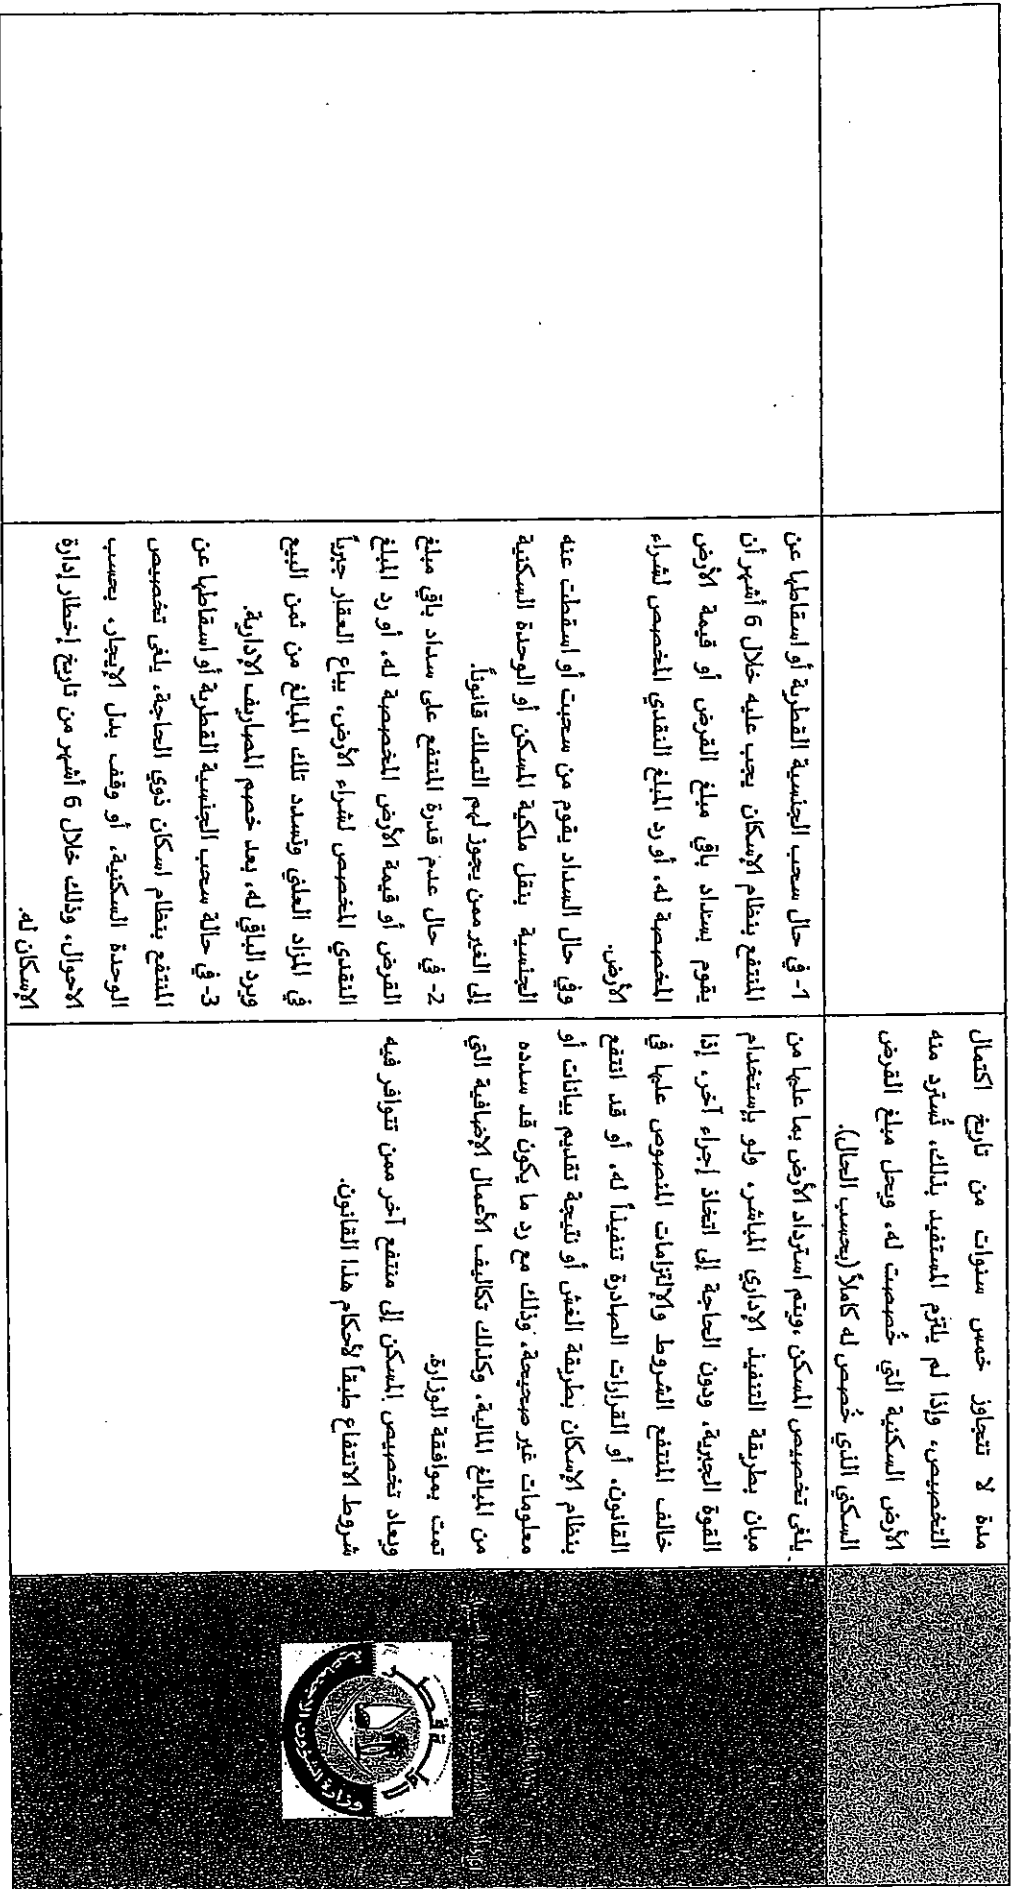 مدة لا تتجاوز خمس سنوات من تاريخ اكتمال
التخصيص، وإذا لم يلتزم المستفيد بذلك، تُسترد منه
الأرض السكنية التي خُصصت له، ويحل مبلغ القرض
السكني الذي خُصص له كاملاً (بحسب الحال).
يلغى تخصيص المسكن ،ويتم استرداد الأرض بما عليها من
مبان بطريقة التنفيذ الإداري المباشر، ولو بإستخدام
القوة الجبرية، ودون الحاجة إلى اتخاذ إجراء آخر، إذا
خالف المنتفع الشروط والإلتزامات المنصوص عليها في
القانون، أو القرارات الصادرة تنفيذاً له، أو قد انتفع
بنظام الإسكان بطريقة الغش أو نتيجة تقديم بيانات أو
معلومات غير صحيحة، وذلك مع رد ما يكون قد سدده
من المبالغ المالية، وكذلك تكاليف الأعمال الإضافية التي
تمت بموافقة الوزارة.
ويعاد تخصيص المسكن إلى منتفع آخر ممن تتوافر فيه
شروط الانتفاع طبقاً لأحكام هذا القانون.
1- في حال سحب الجنسية القطرية أو اسقاطها عن
المنتفع بنظام الإسكان يجب عليه خلال 6 أشهر أن
يقوم بسداد باقي مبلغ القرض أو قيمة الأرض
المخصصة له، أو رد المبلغ النقدي المخصص لشراء
الأرض.
وفي حال السداد يقوم من سحبت أو اسقطت عنه
الجنسية بنقل ملكية المسكن أو الوحدة السكنية
إلى الغير ممن يجوز لهم التملك قانوناً.
2- في حال عدم قدرة المنتفع على سداد باقي مبلغ
القرض أو قيمة الأرض المخصصة له، أو رد المبلغ
النقدي المخصص لشراء الأرض، يباع العقار جبرياً
في المزاد العلني وتسدد تلك المبالغ من ثمن البيع
ويرد الباقي له، بعد خصم المصاريف الإدارية.
3- في حالة سحب الجنسية القطرية أو اسقاطها عن
المنتفع بنظام اسكان ذوي الحاجة، يلغى تخصيص
الوحدة السكنية، أو وقف بدل الإيجار، بحسب
الاحوال، وذلك خلال 6 أشهر من تاريخ إخطار إدارة
الإسكان له.